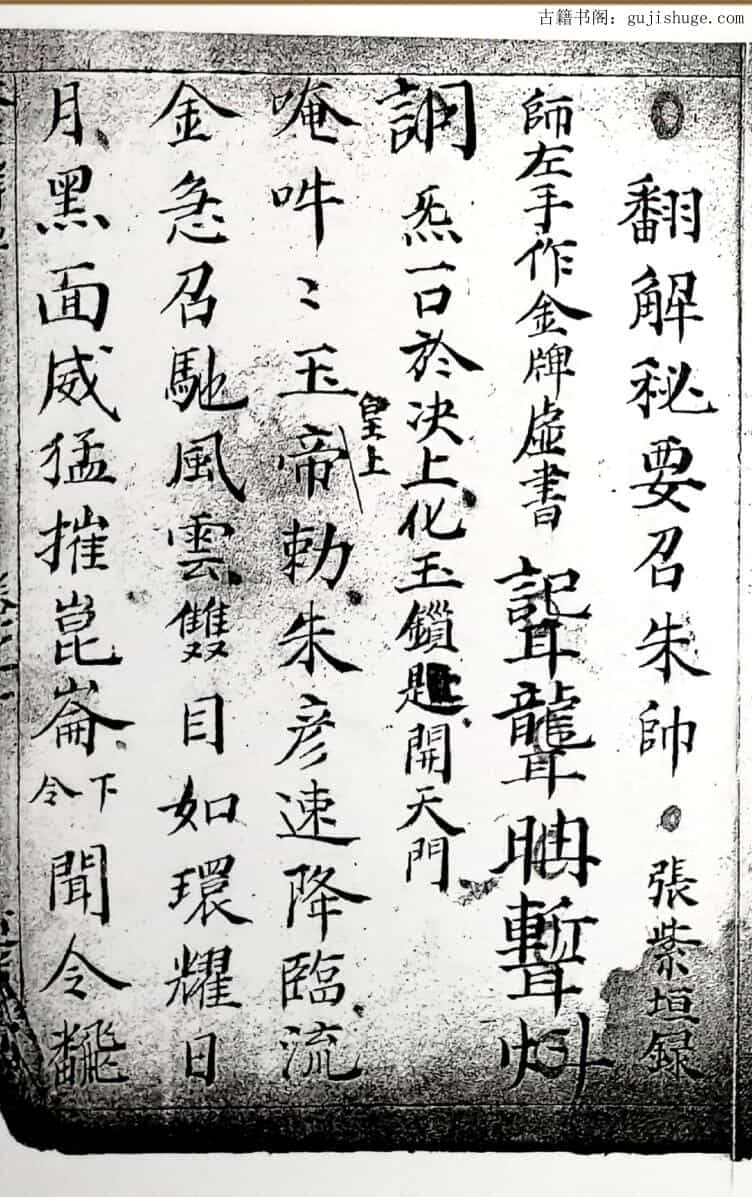 古籍书阁：gujishuge.com
翻解秘要召朱帥 張紫垣録
師左手作金牌虛書
炁一口於决上化玉鎖匙開天門
唵吽〻玉帝勅朱彦速降臨流
皇上
金急召馳風雲雙目如環耀日
月黑面威猛摧崑崙令下聞令翻